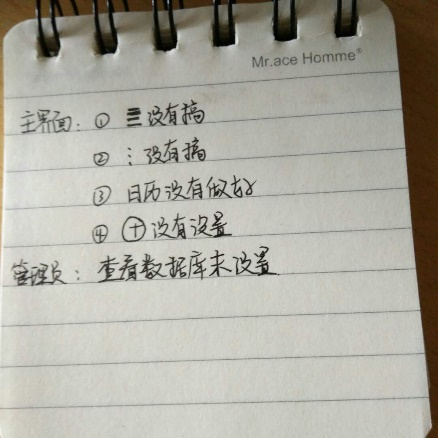 Mr.ace Homme®
主界面：① ☰没有搞
② ⋮没有搞
③ 日历没有做好
④ ⊕没有设置
管理员：查看数据库未设置